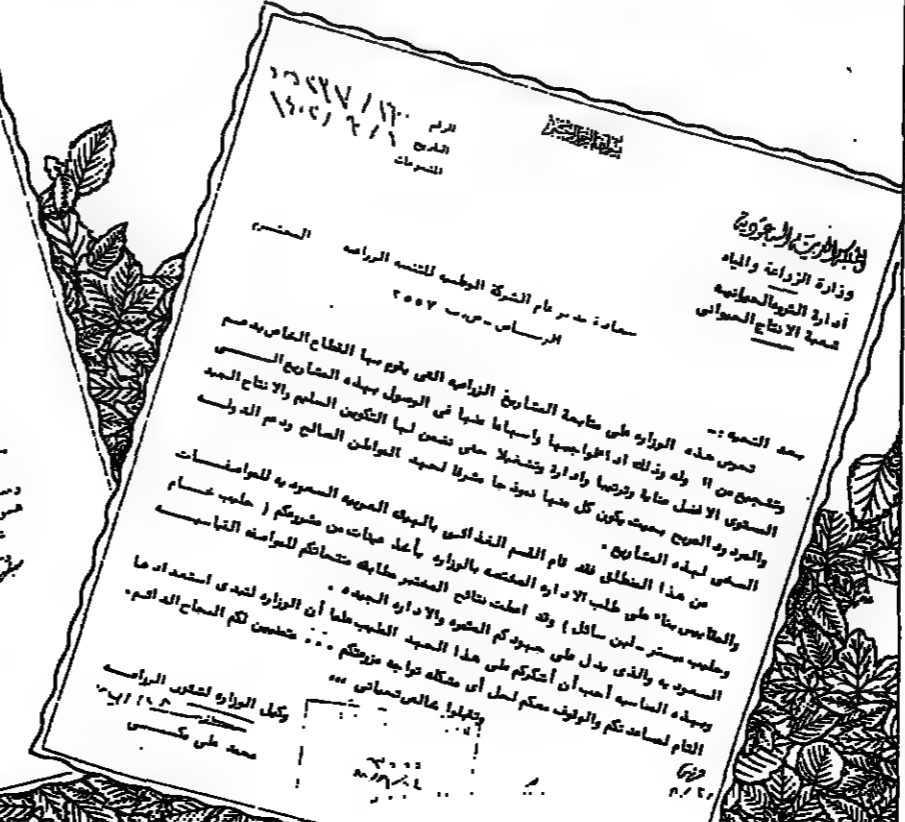 الرقم ١٦٠٠ /
التاريخ ١ / ٦ / ١٤٠٢
المشفوعات
المملكة العربية السعودية
وزارة الزراعة والمياه
أدارة الثروة الحيوانية
شعبة الانتاج الحيوانى
سعادة مدير عام الشركة الوطنيه للتنميه الزراعيه المحترم
الريـــاض - ص.ب ٢٥٥٧
بعد التحيه :-
تحرص هذه الوزاره على متابعة المشاريع الزراعيه التى يقوم بها القطاع الخاص بدعم
وتشجيع من وله وذلك اداء لواجبها واسهاما منها فى الوصول بهذه المشاريع الـــى
المستوى الافضل عناية وترتيبا وادارة وتشغيلا حتى نضمن لها التكوين السليم والانتاج الجيد
والمردود المريح بحيث يكون كل منها نموذجا مشرفا لجهد المواطن الصالح ودعم الدولـــه
السخى لهذه المشاريع .
من هذا المنطلق فقد قام القسم الغذائى بالهيئه العربيه السعوديه للمواصفـــات
والمقاييس بناء على طلب الاداره المختصه بالوزاره بأخذ عينات من مشروعكم ( حليب خـــام
وحليب مبستر - لبن سائل ) وقد اعطت نتائج المختبر مطابقة منتجاتكم للمواصفه القياسيـــه
السعوديه والذى يدل على جهودكم المثمره والاداره الجيده .
وبهذه المناسبه أحب أن أشكركم على هذا الجهد الطيب علما أن الوزاره لتبدى استعدادها
التام لمساعدتكم والوقوف معكم لحل أى مشكله تواجه مزرعتكم ... متمنين لكم النجاح الدائم .
وتقبلوا خالص تحياتى ...
وكيل الوزاره لشئون الزراعـــه
محمد على مكـــى